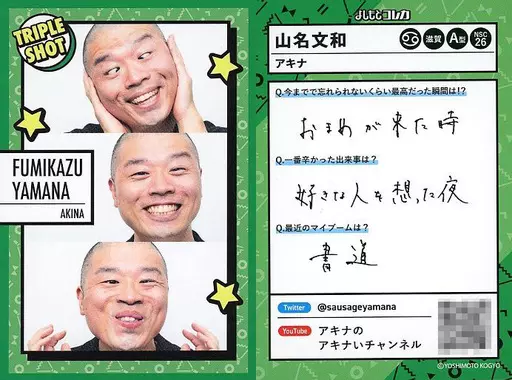 TRIPLE
SHOT
FUMIKAZU
YAMANA
AKINA
よしもとコレカ
山名文和
アキナ
♋
滋賀
A型
NSC
26
Q.今までで忘れられないくらい最高だった瞬間は!?
おまめが来た時
Q.一番辛かった出来事は?
好きな人を想った夜
Q.最近のマイブームは?
書道
Twitter @sausageyamana
YouTube アキナの
アキナいチャンネル
©YOSHIMOTO KOGYO